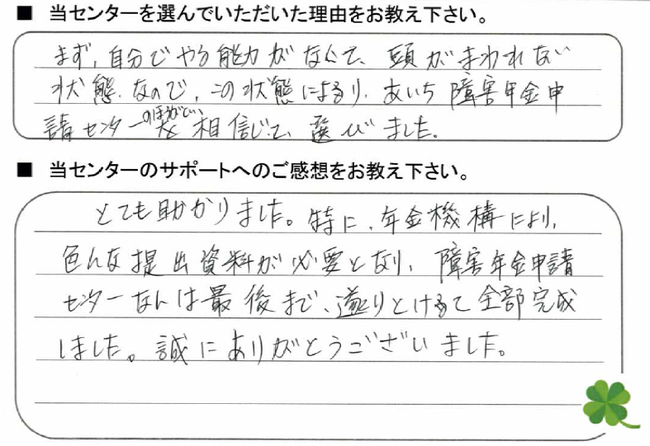 ■ 当センターを選んでいただいた理由をお教え下さい。
まず、自分でやる能力がなくて、頭がまわれない
状態なので、この状態によるり、あいち障害年金申
請センターのほうがいいを相信じて、選びました。
■ 当センターのサポートへのご感想をお教え下さい。
とても助かりました。特に、年金機構により、
色んな提出資料が必要となり、障害年金申請
センターなんは最後まで、遂りとげるて全部完成
しました。誠にありがとうございました。